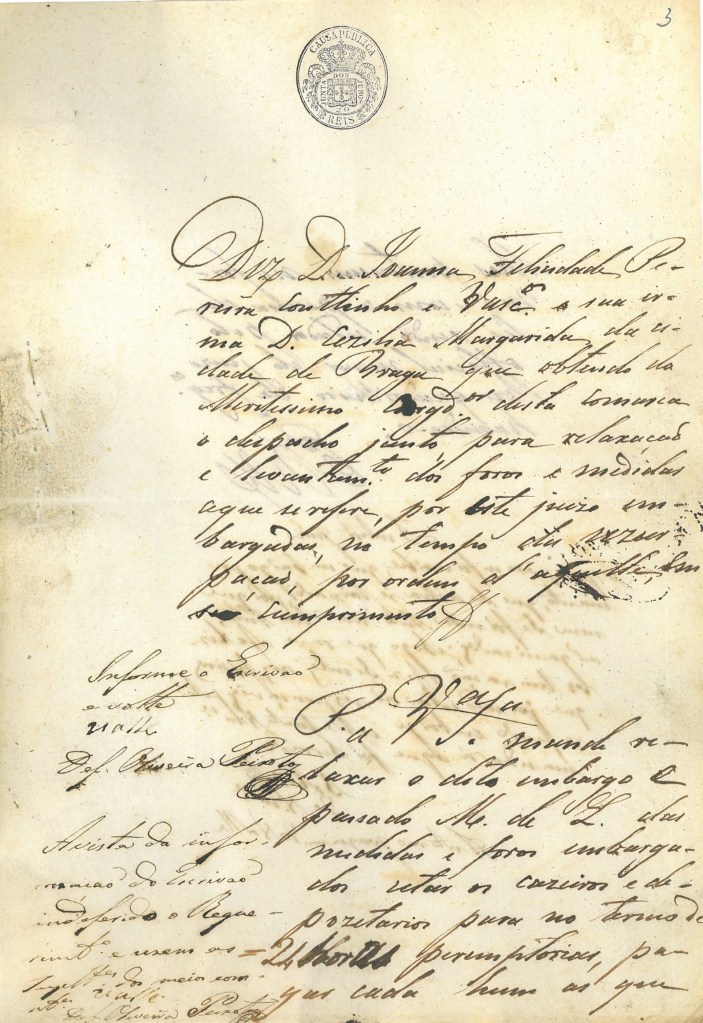 3
CAUSA PUBLICA
JUNTA DOS JUROS
20
REIS
Diz D. Joanna Felicidade Pe-
reira Couttinho e Vasc.os e sua ir-
ma D. Cezilia Margarida, da ci-
dade de Braga que obtendo do
Meritissimo Corgd.or desta Comarca
o despacho junto, para relaxaçaõ
e levantem.to dos foros e medidas
aque se refere, por este juizo em-
bargadas, no tempo da uzur-
paçaõ, por ordem d'aquelle, em
seo cumprimento
P. a V. S.a mande re-
laxar o dito embargo e
passado M. de L. das
medidas e foros embarga-
dos citar os cazeiros e de-
pozetarios para no termo de
24 horas peremptorias, pa-
gar cada hum as que
Informe o Escrivaõ
e volte
Valle
Def. Oliveira Peixoto
A vista da infor-
maçaõ do Escrivaõ
indeferido o Reque-
rim.to e uzem as =
Supp.tes do meio com-
Valle
Oliveira Peixoto